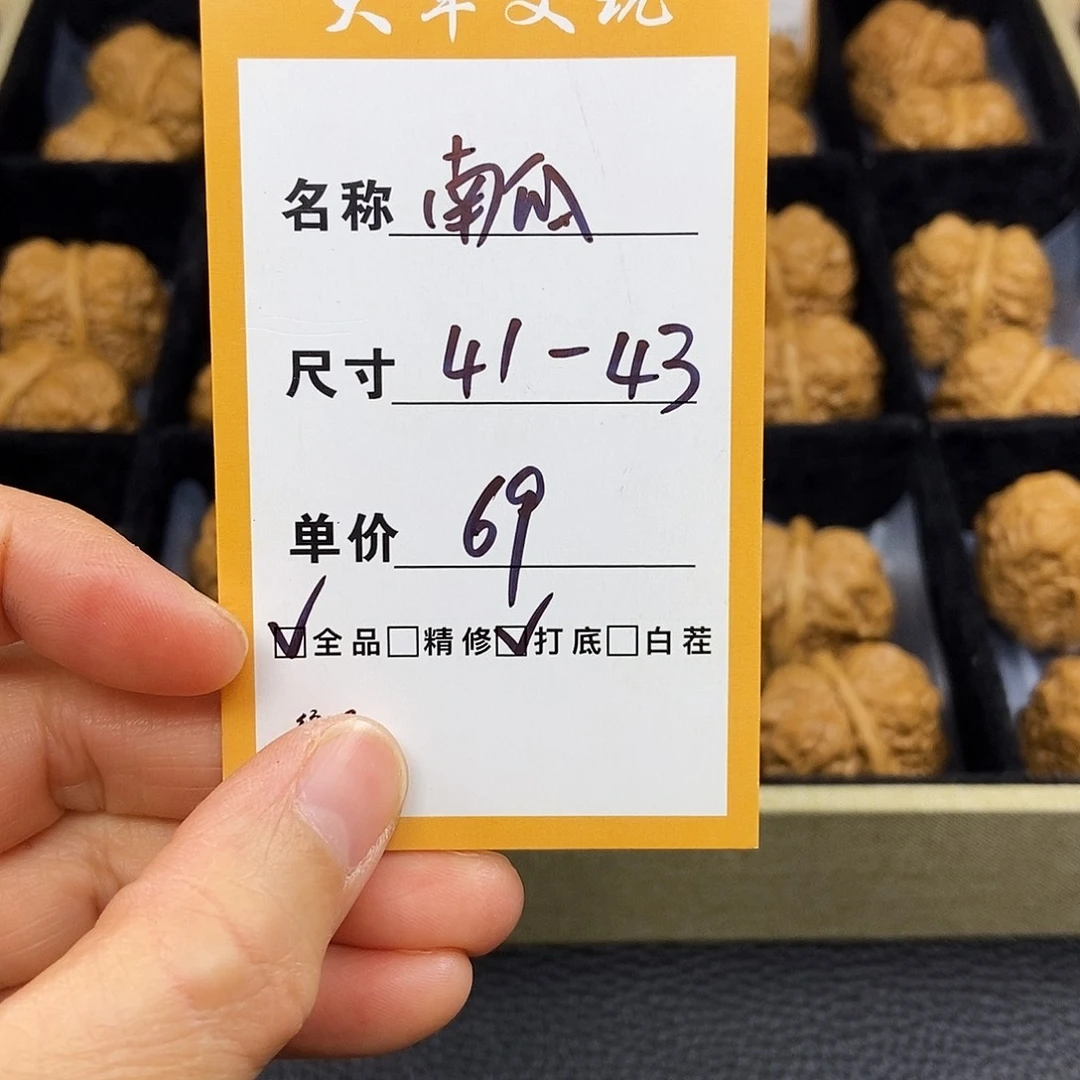 文玩
名称 南瓜
尺寸 41-43
单价 69
☑全品☐精修☑打底☐白茬